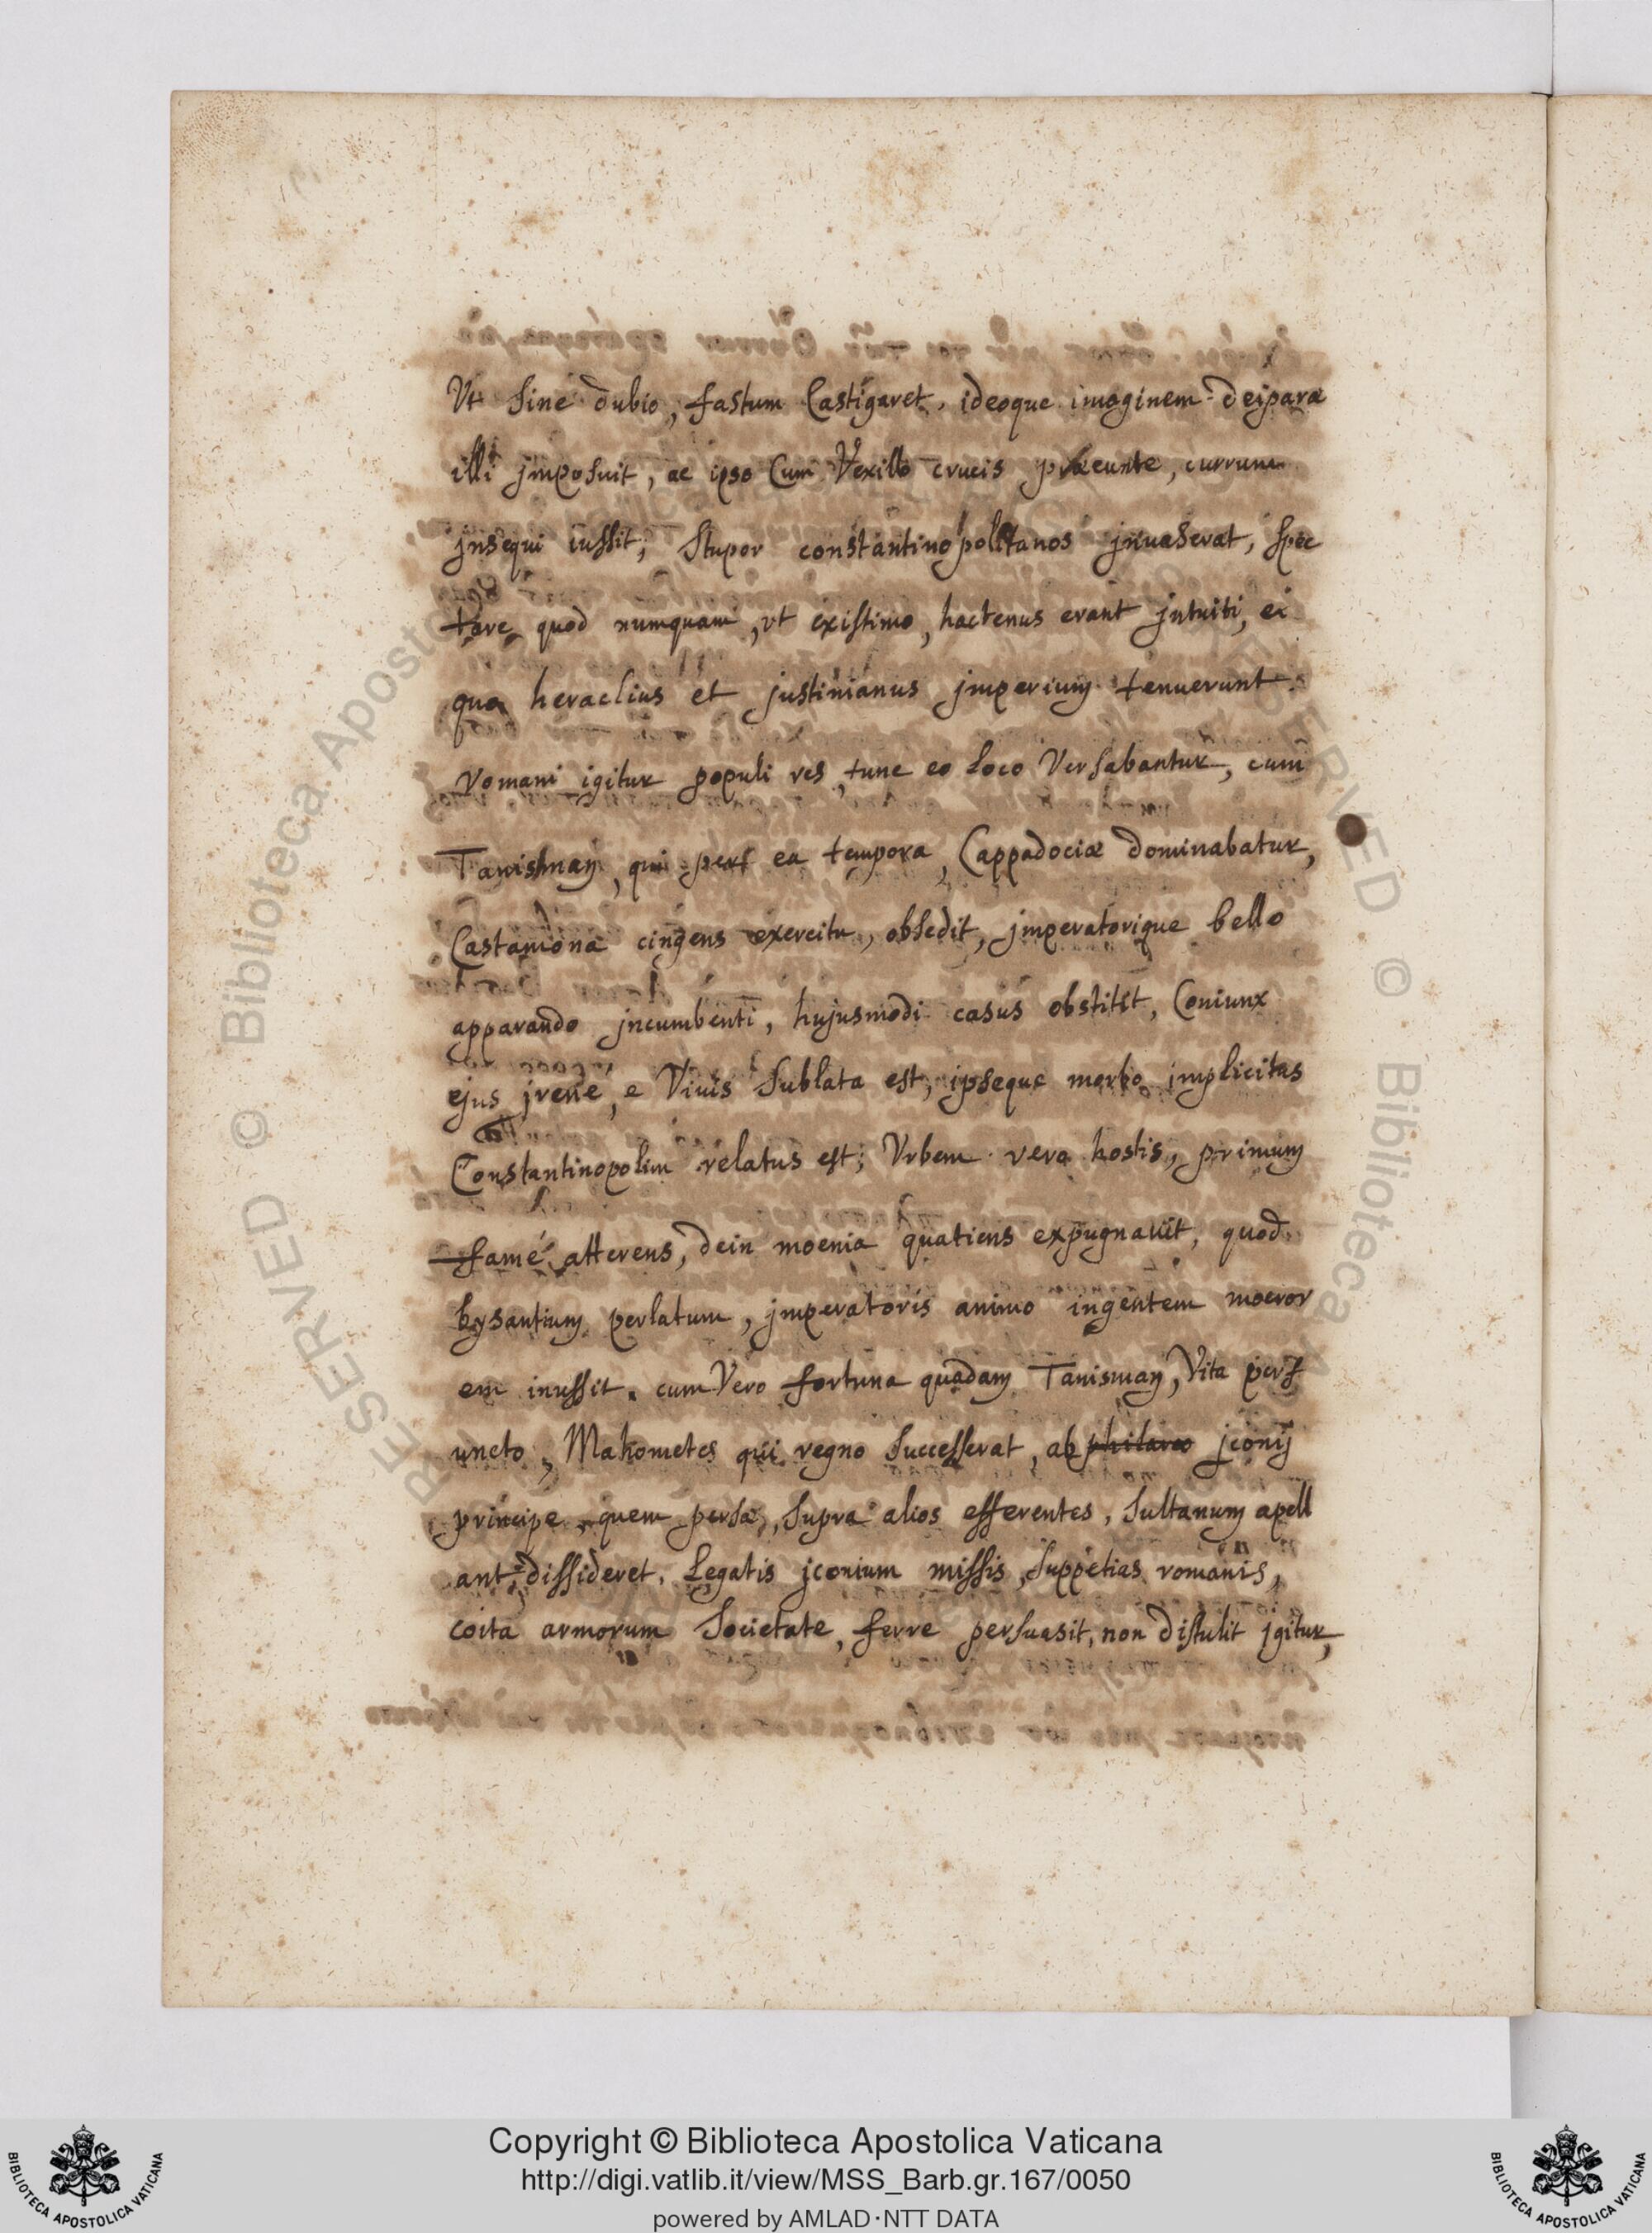 Vt sine dubio, fastum Castigaret, ideoque imaginem deiparæ
illi jmposuit, ac ipso Cum Vexillo crucis præeunte, currum
jnsequi iussit; stupor constantinopolitanos jnuaserat, spec
tare quod numquam, vt existimo, hactenus erant jntuiti, ex
quo heraclius et justinianus jmperium tenuerunt.
romani igitur populi res, tunc eo loco Versabantur, cum
Tanisman, qui per ea tempora, Cappadociæ dominabatur,
Castamona cingens exercitu, obsedit, jmperatorique bello
apparando jncumbenti, hujusmodi casus obstitit, Coniunx
ejus jrene, e Viuis sublata est, ipseque morbo implicitus
Constantinopolim relatus est; Vrbem vero hostis, primum
fame atterens, dein moenia quatiens expugnauit, quod
bysantium perlatum, jmperatoris animo ingentem moeror
em inussit. cum Vero fortuna quadam Tanisman, Vita perf
uncto, Mahometes qui regno successerat, ab philareo jconij
principe, quem persæ, supra alios efferentes, sultanum apell
ant dissideret, Legatis jconium missis, suppetias romanis,
coita armorum societate, ferre persuasit, non distulit jgitur,
RESERVED © Biblioteca Aposto
RESERVED © Biblioteca A
Copyright © Biblioteca Apostolica Vaticana
http://digi.vatlib.it/view/MSS_Barb.gr.167/0050
powered by AMLAD·NTT DATA
BIBLIOTECA APOSTOLICA VATICANA
BIBLIOTECA APOSTOLICA VATICANA